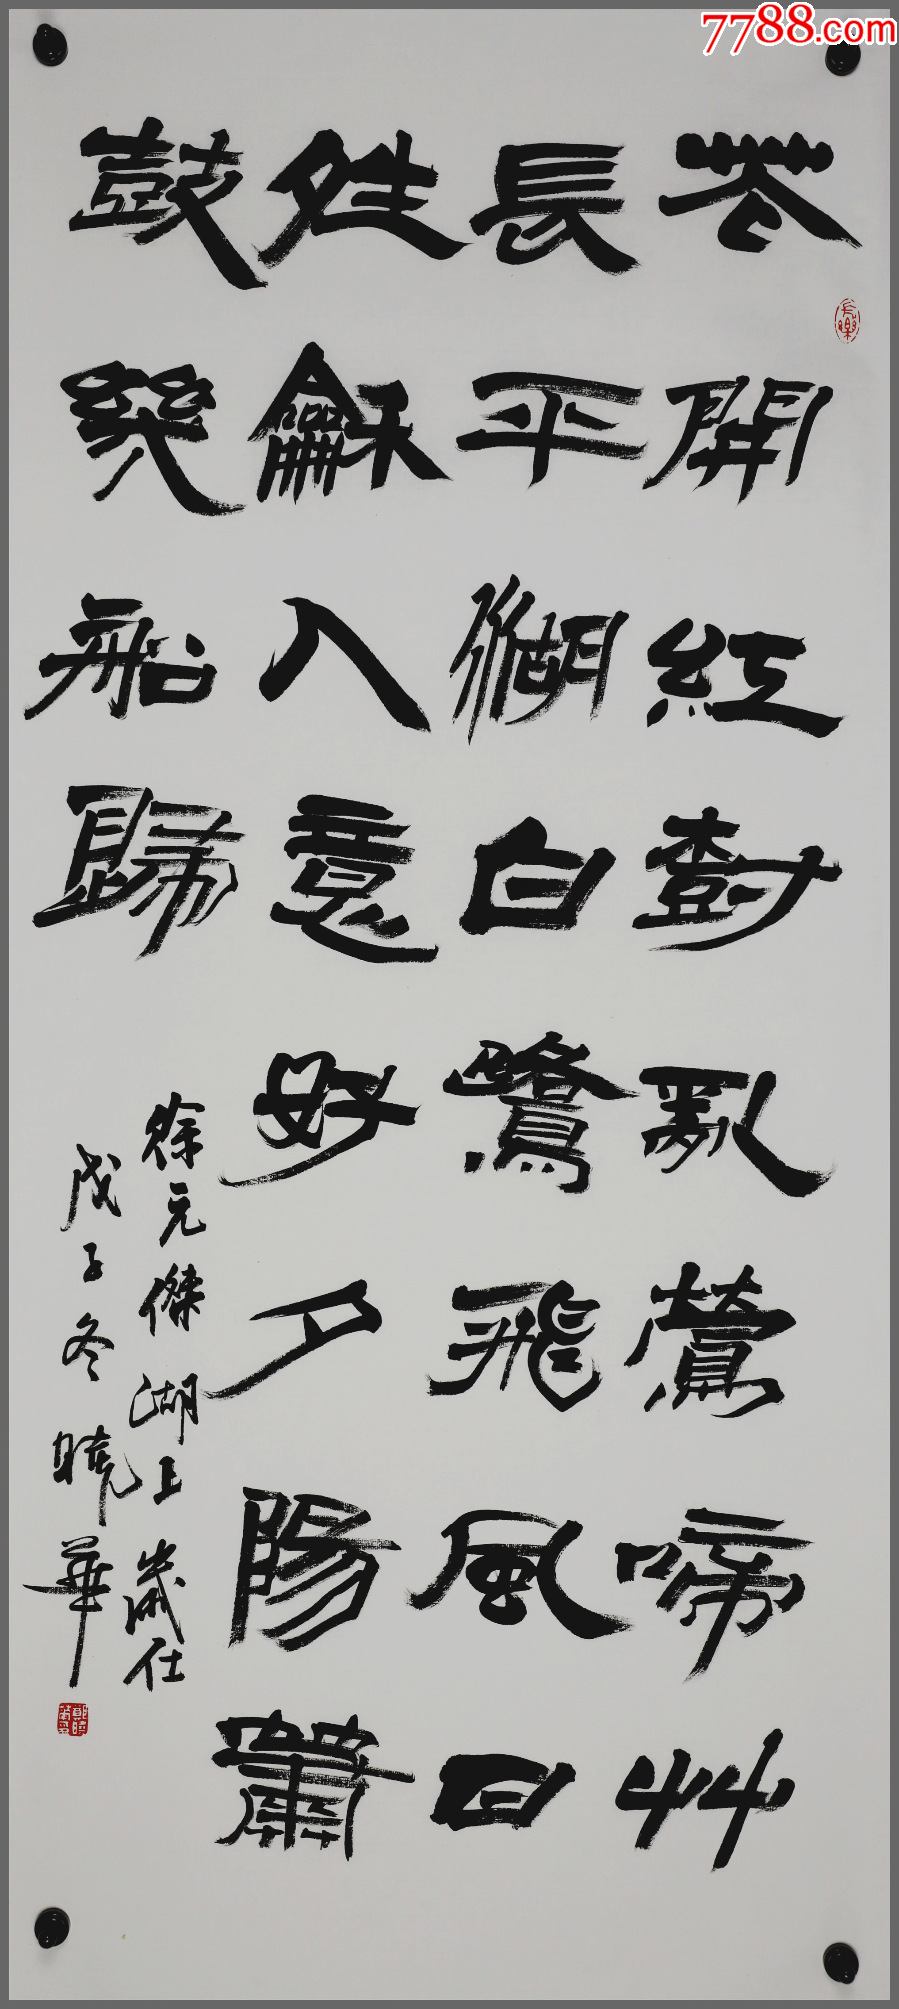 花開紅樹亂鶯啼艸
長平湖白鷺飛風日
夝龢人意好夕陽簫
鼓幾船歸
徐元傑湖上歲在
戊子冬曉華
長樂
7788.com